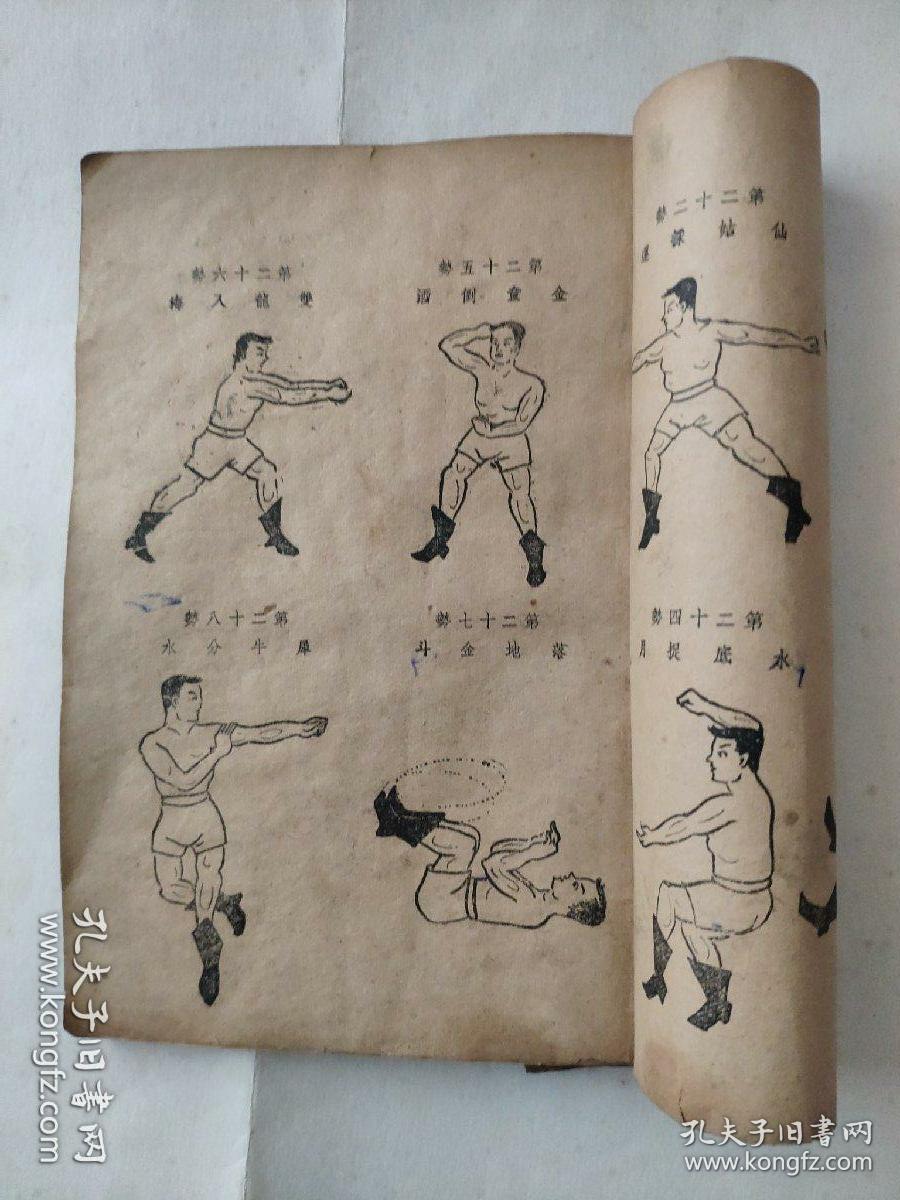 第二十二勢
仙姑採蓮
第二十四勢
水底捉月
第二十五勢
金童倒酒
第二十六勢
雙龍入海
第二十七勢
落地金斗
第二十八勢
犀牛分水
孔夫子旧书网
www.kongfz.com
孔夫子旧书网
www.kongfz.com